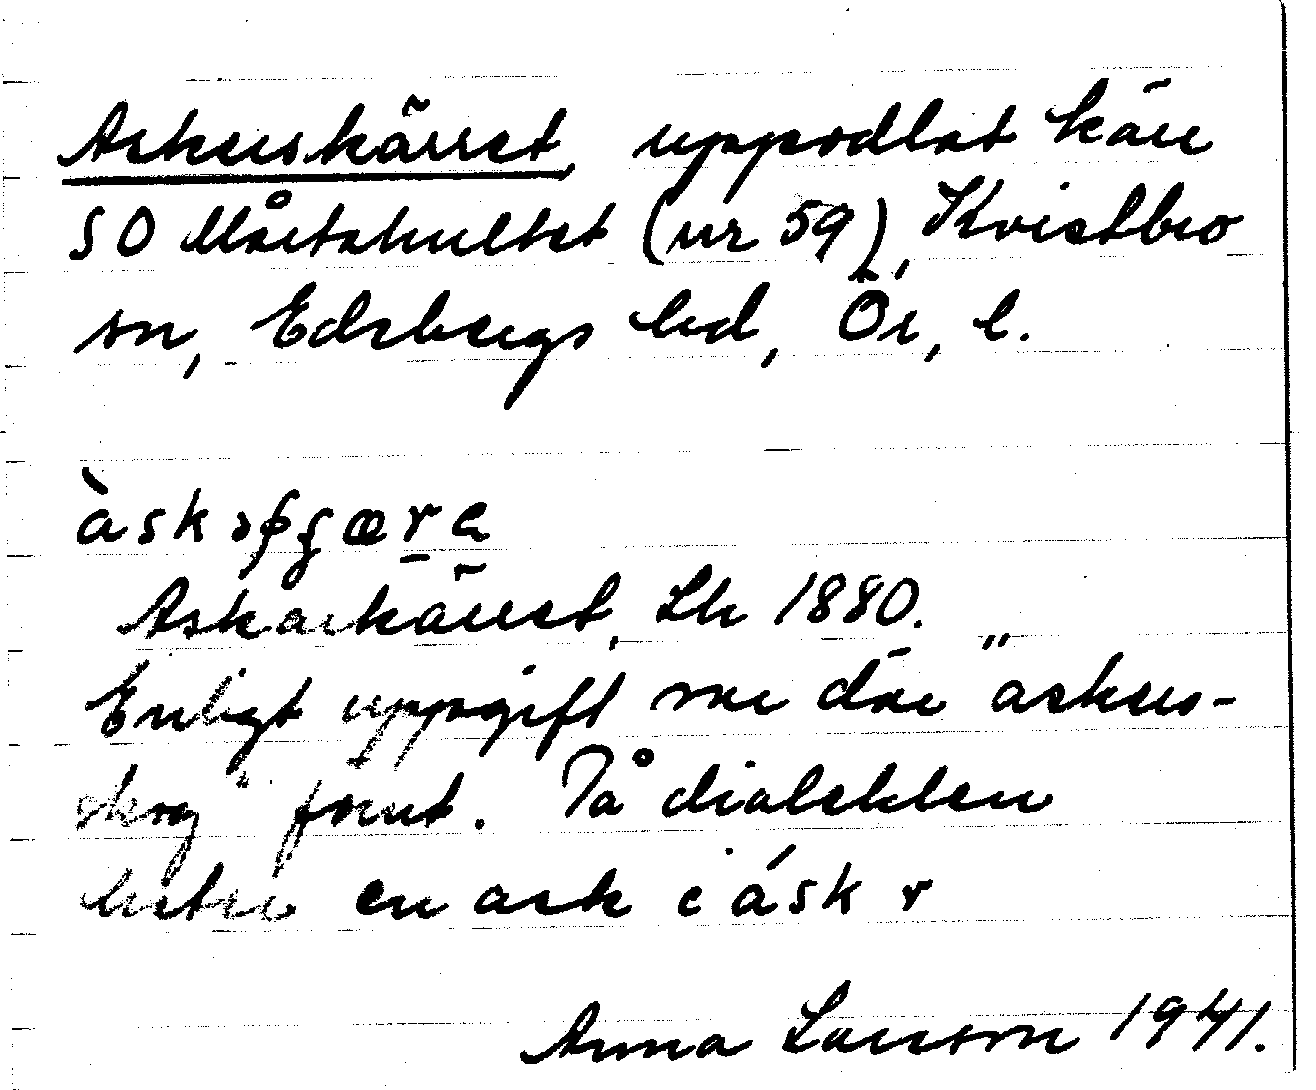 Askerskärret, uppodlat kärr
SO Mårtshultet (nr 59), Kvistbro
sn, Edsbergs hd, Ör, l.
àsk
Askarkärret, Lk 1880.
Enligt uppgift var där "askers-
skog" förut. På dialekten
heter en ask i ásk r
Anna Larsson 1941.